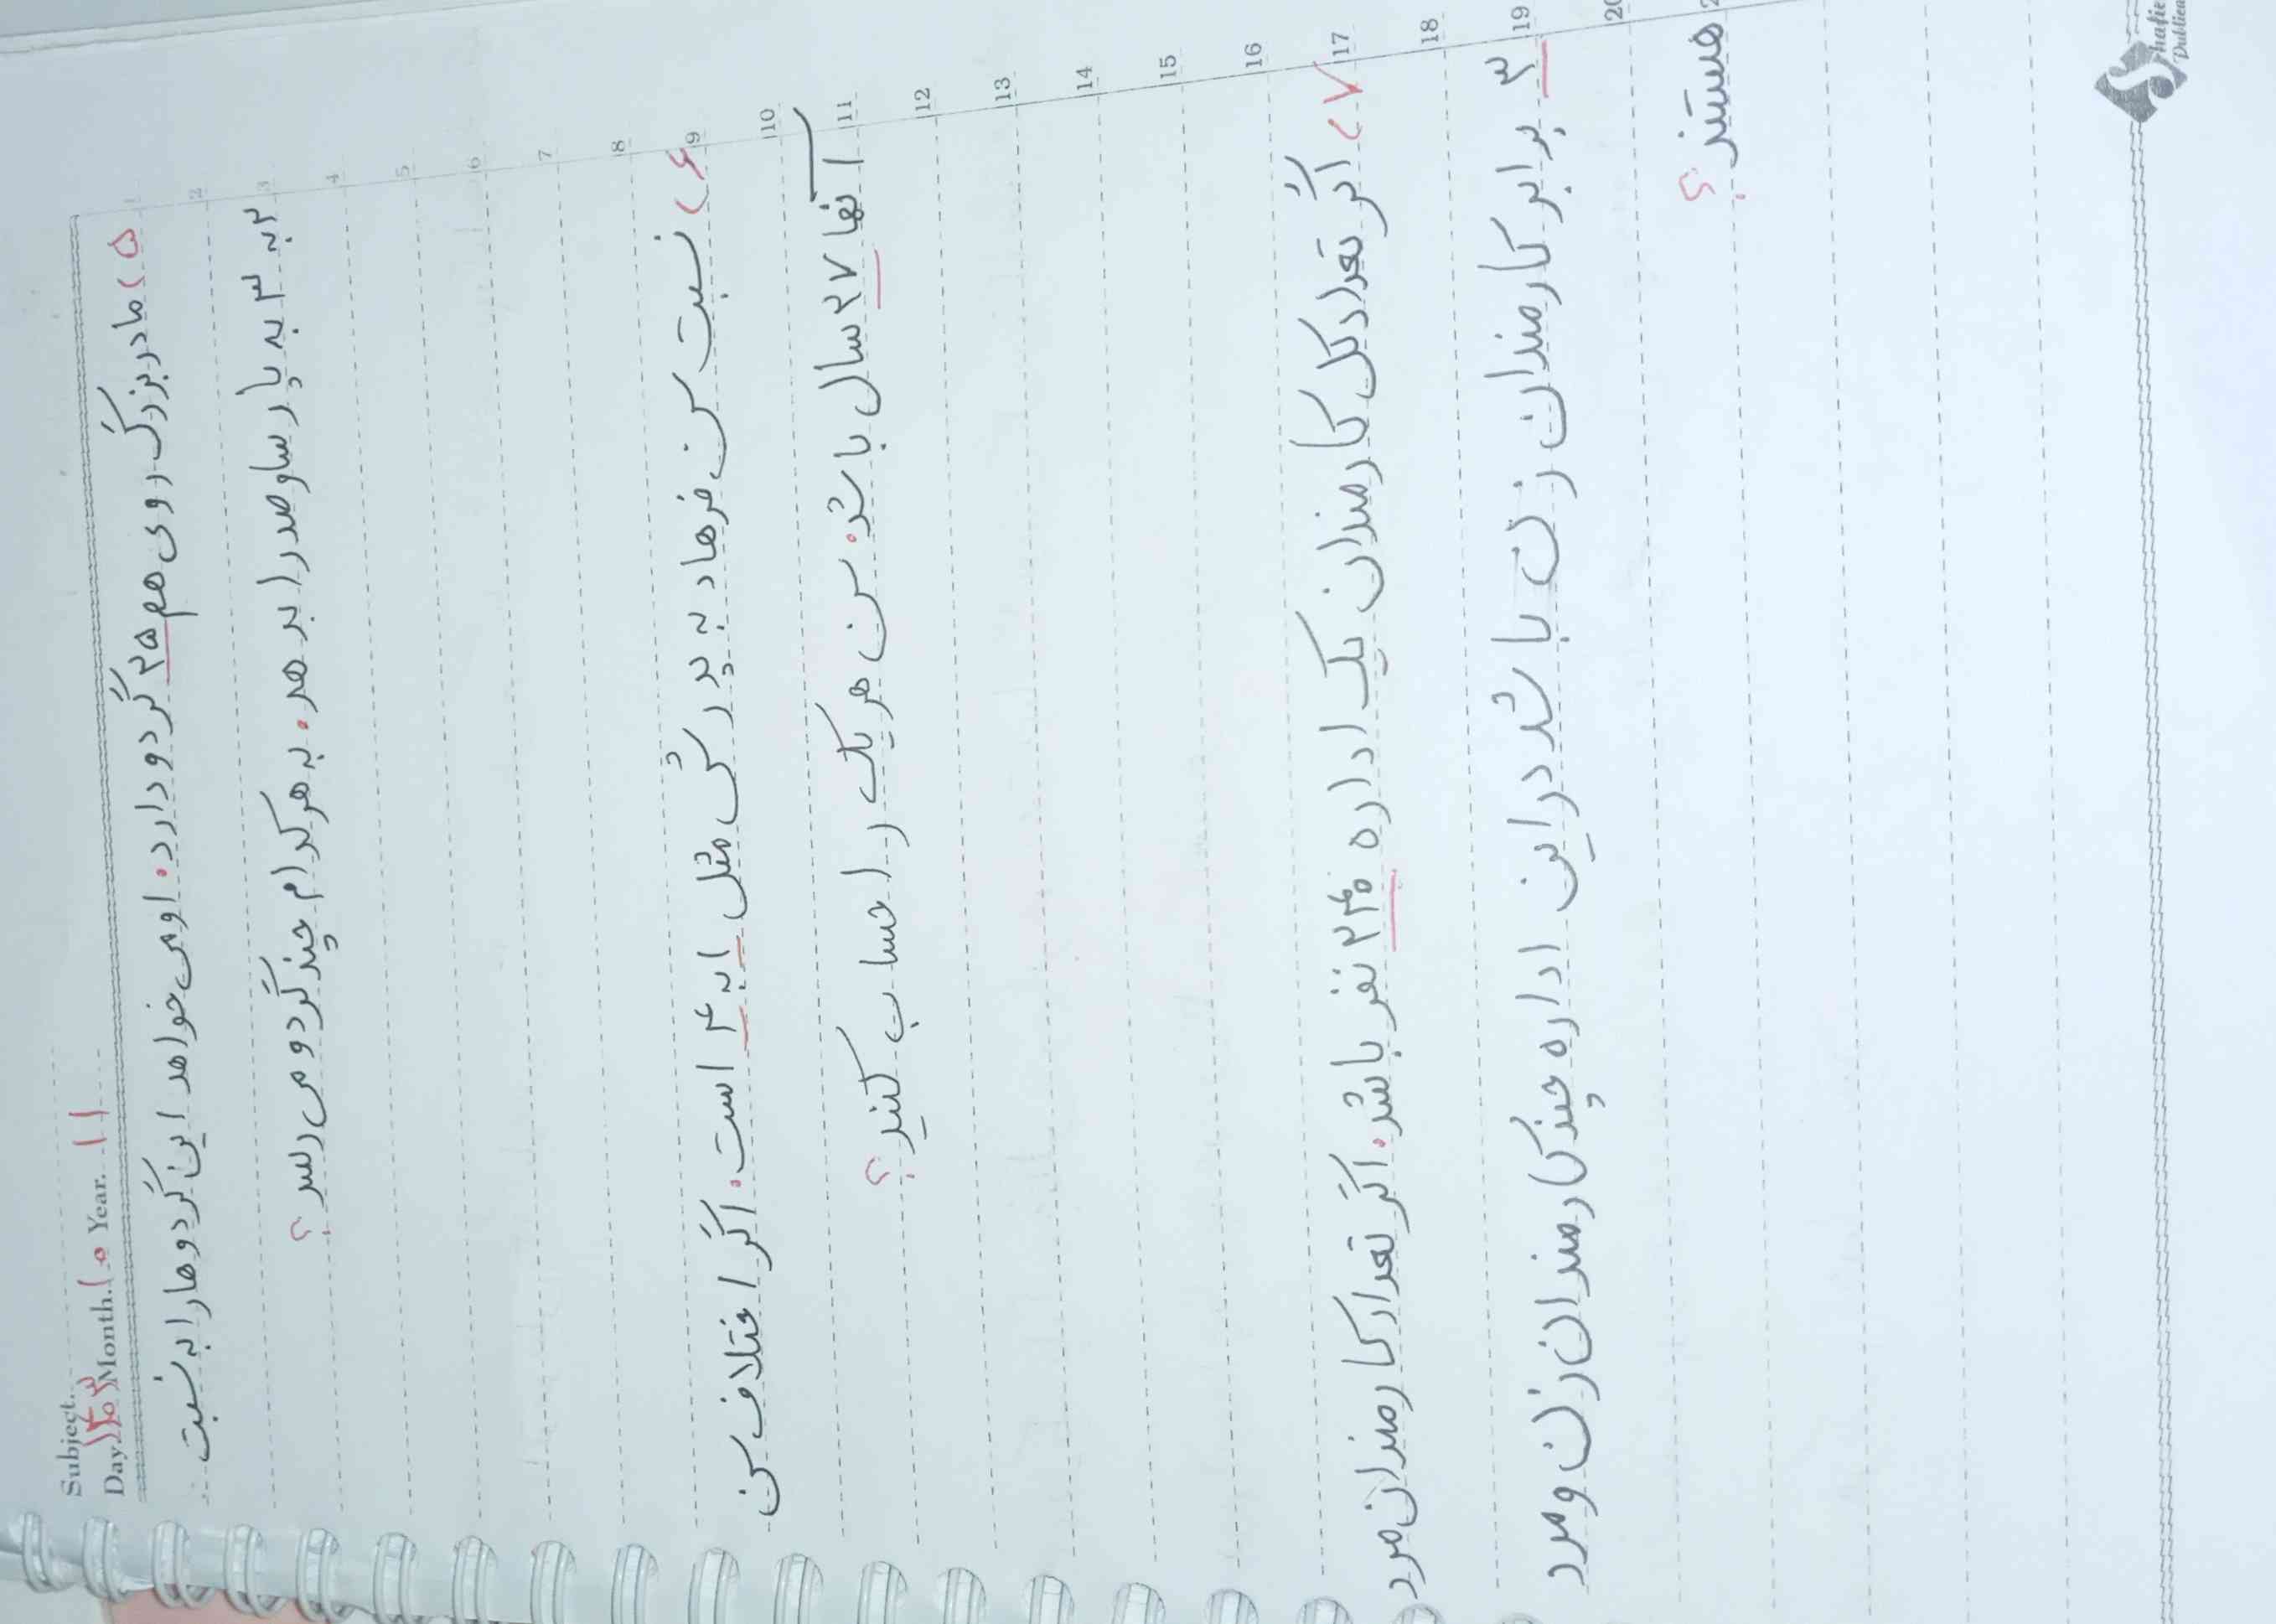 Subject.
Day. ۱۴۰۳ Month. ۱۰ Year. ۱۱
۵) مادربزرگ روی هم ۲۵ گردو دارد. او می خواهد این گردوها را به نسبت
۲ به ۳ به پارسا و صدرا بدهد. به هر کدام چند گردو می رسد؟
۶) نسبت سن فرهاد به پدرش مثل ۱ به ۴ است. اگر اختلاف سن
آنها ۲۷ سال باشد. سن هر یک را حساب کنید؟
۷) اگر تعداد کل کارمندان یک اداره ۲۴۰ نفر باشد. اگر تعداد کارمندان مرد
۳ برابر کارمندان زن باشد در این اداره چند کارمندان زن و مرد
هستند؟
1
2
3
4
5
6
7
8
9
10
11
12
13
14
15
16
17
18
19
20